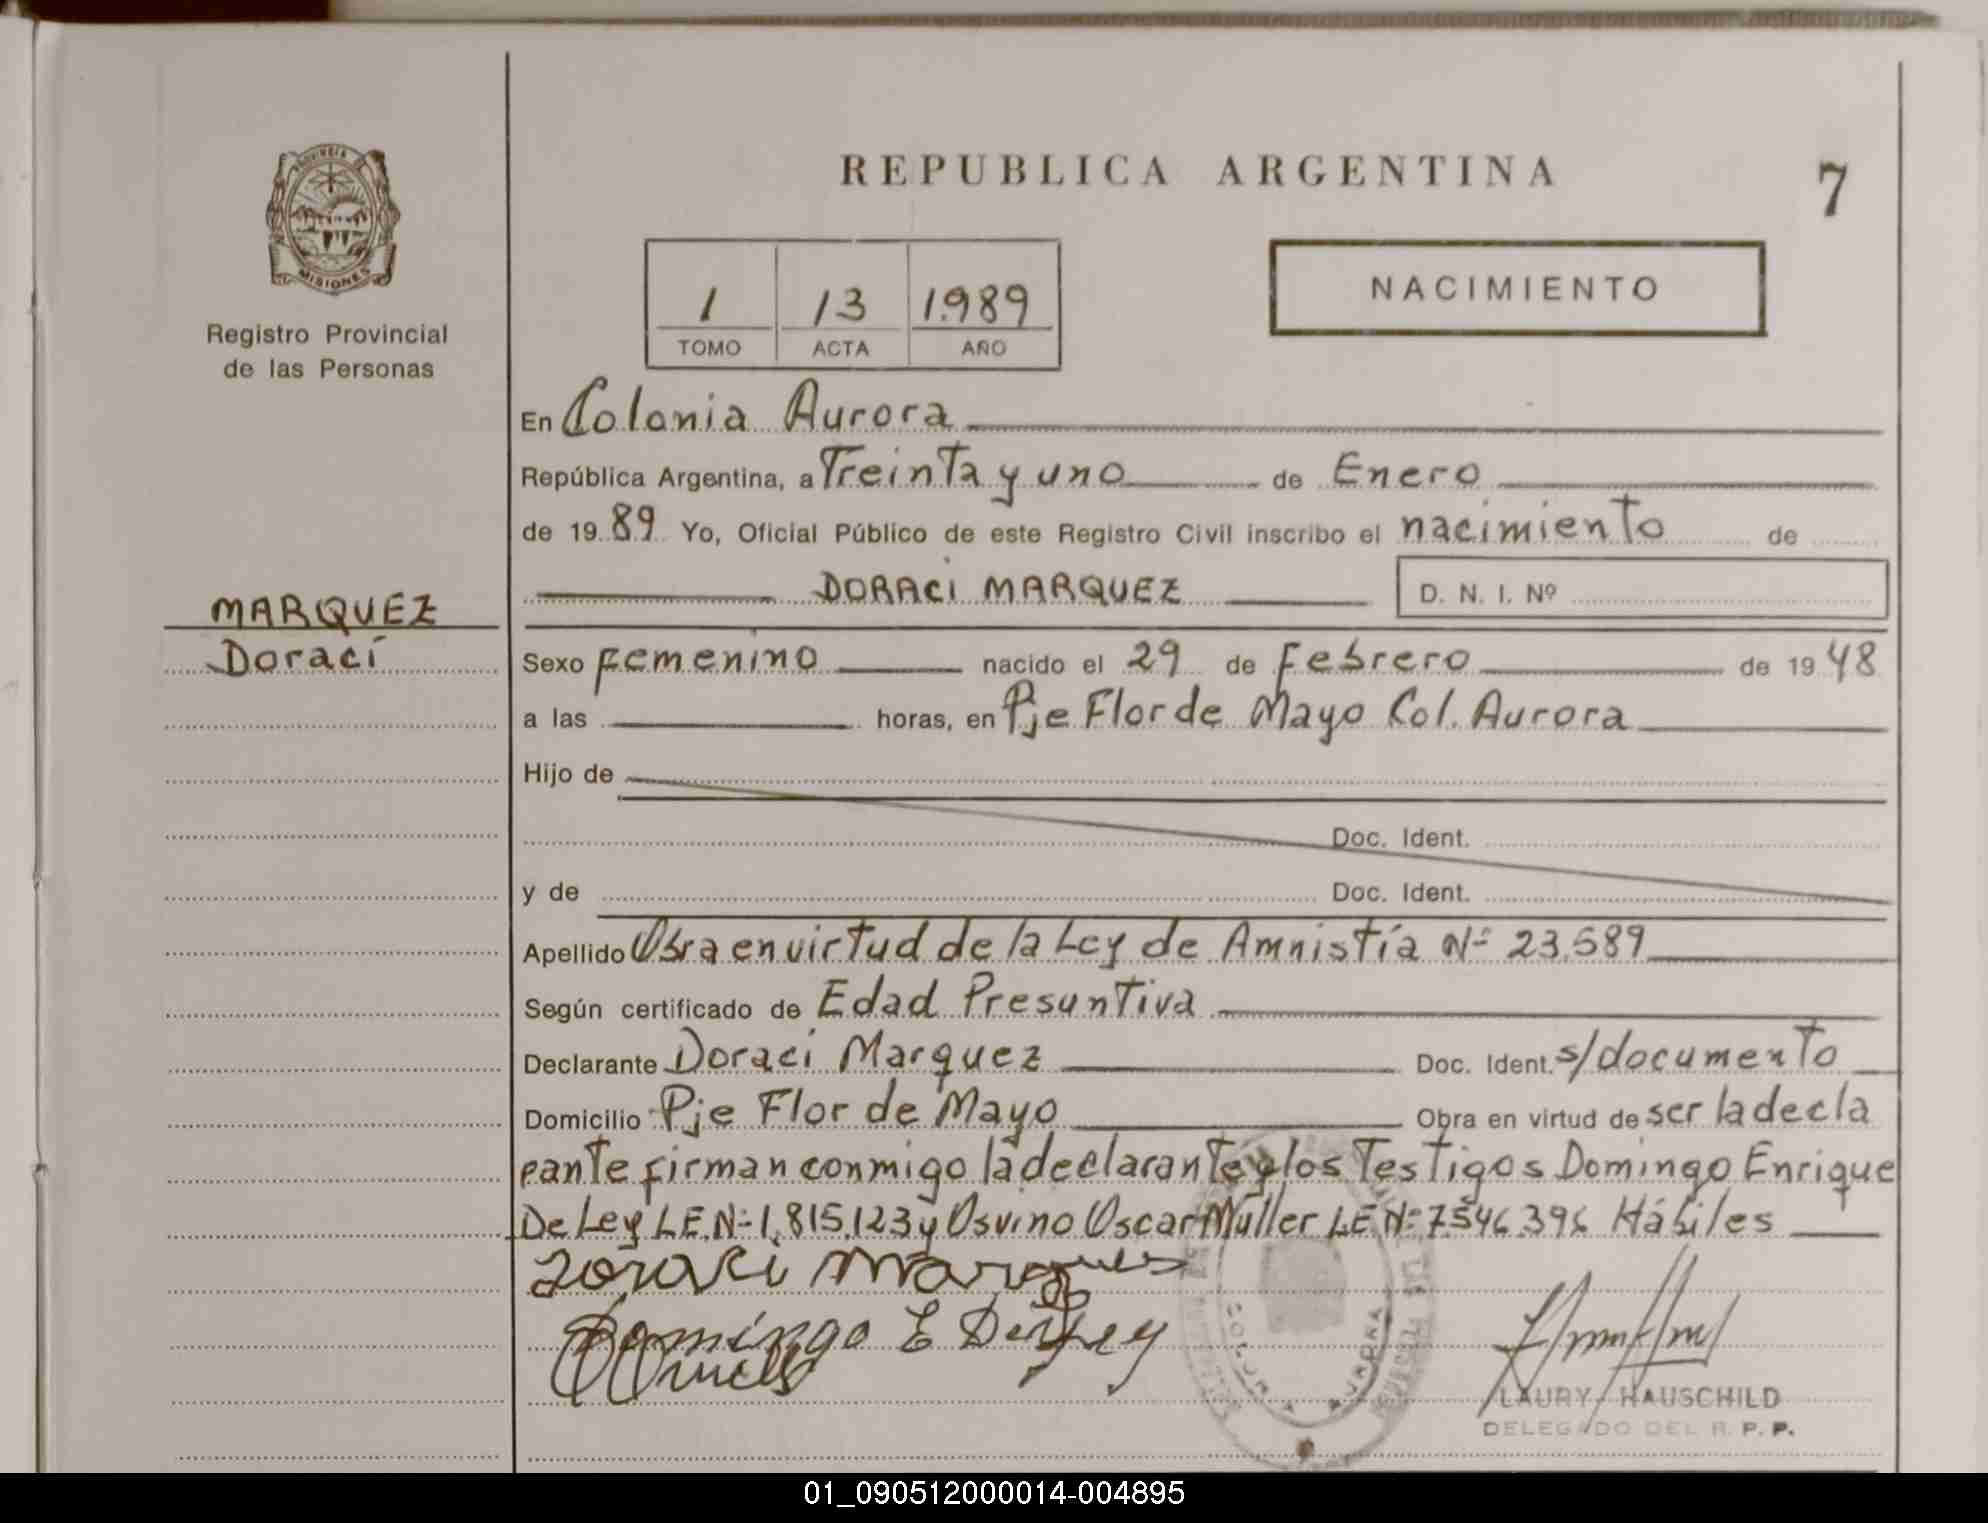 REPUBLICA ARGENTINA
7
PROVINCIA DE
MISIONES
Registro Provincial
de las Personas
1 13 1.989
TOMO ACTA AÑO
NACIMIENTO
En Colonia Aurora
República Argentina, a Treinta y uno de Enero
de 1989 Yo, Oficial Público de este Registro Civil inscribo el nacimiento de
DORACI MARQUEZ D. N. I. Nº
MARQUEZ
Doraci
Sexo femenino nacido el 29 de Febrero de 1948
a las horas, en Pje Flor de Mayo Col. Aurora
Hijo de
Doc. Ident.
y de Doc. Ident.
Apellido Obra en virtud de la Ley de Amnistía Nº 23.589
Según certificado de Edad Presuntiva
Declarante Doraci Marquez Doc. Ident. s/documento
Domicilio Pje Flor de Mayo Obra en virtud de ser la decla
rante firman conmigo la declarante y los Testigos Domingo Enrique
De Ley L.E. Nº 1.815.123 y Osvino Oscar Müller L.E. Nº 7.546.396 Hábiles
Doraci Marques
Domingo E
COLONIA AURORA
LAURY HAUSCHILD
DELEGADO DEL R. P. P.
01_090512000014-004895